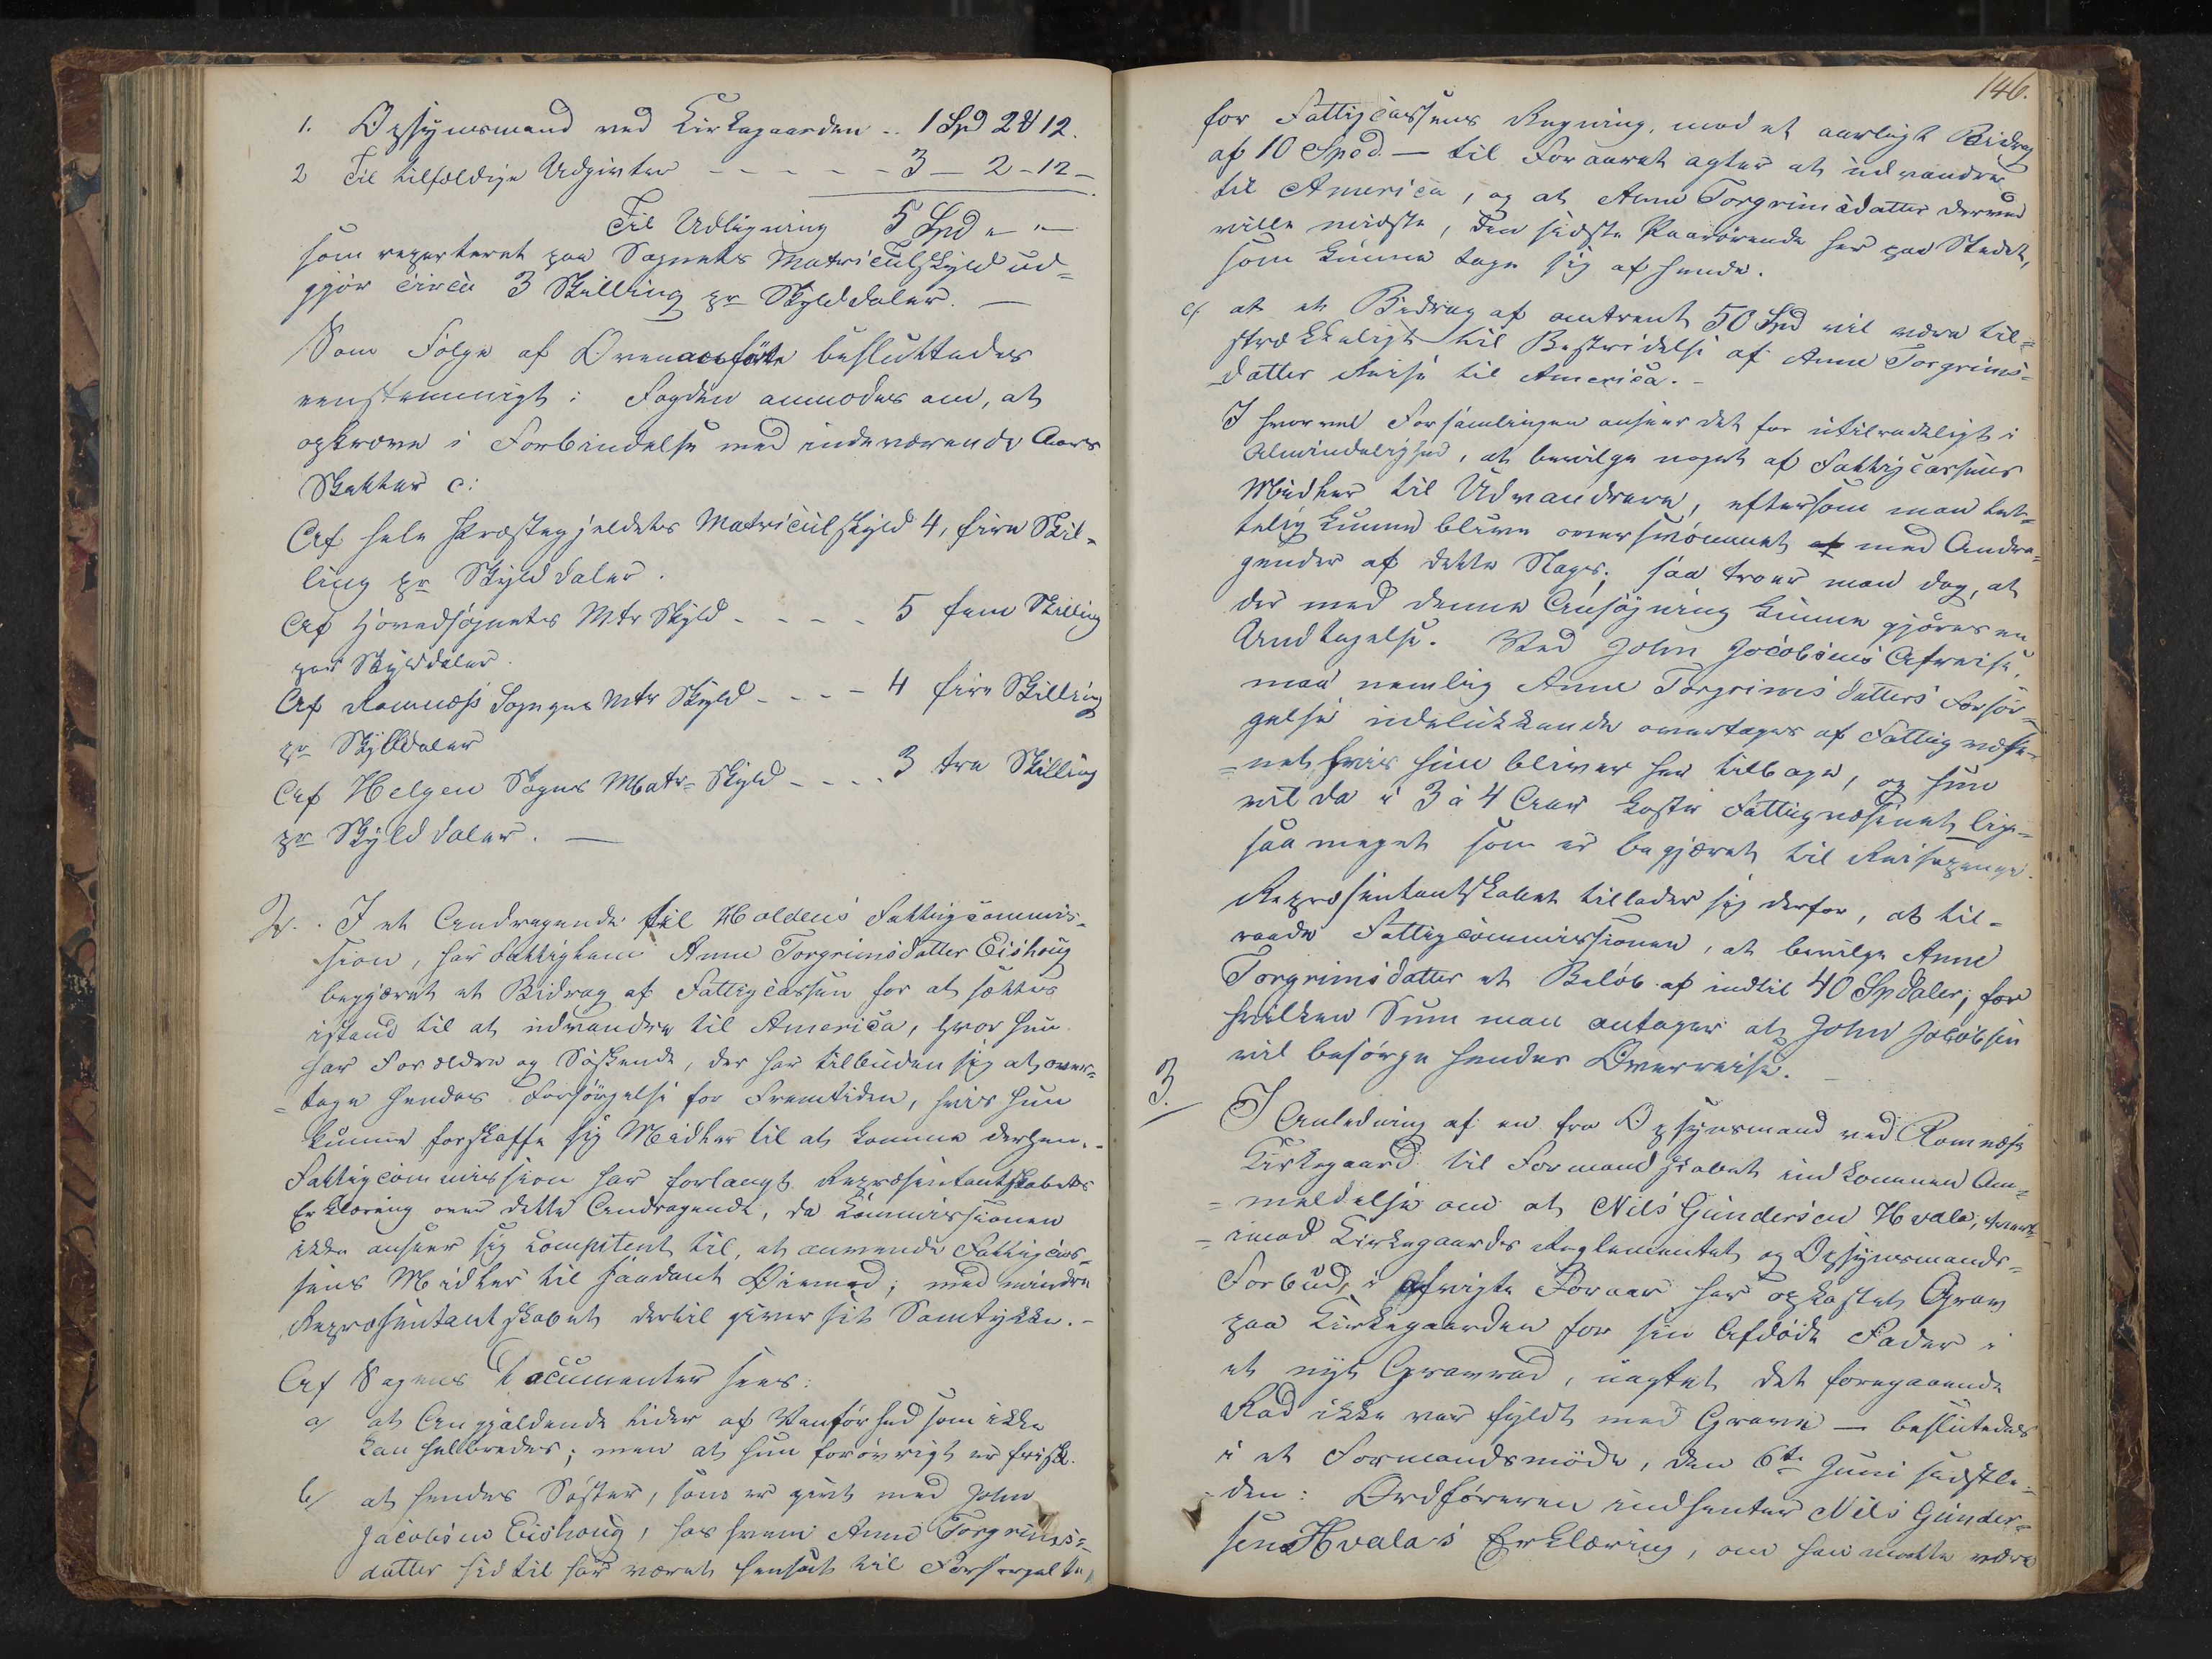 1. Opsynsmand ved Kirkegaarden .. 1 Spd 2 ℔ 12.
2 Til tilfældige Udgivter - - - - - 3 - 2 - 12 -
Til Udligning 5 Spd " "
som reparteret paa Sognets Matriculskyld ud=
gjør circa 3 Skilling pr Skylddaler. —
Som Følge af Ovenanførte besluttedes
eenstemmigt: Fogden anmodes om, at
opkræve i Forbindelse med indeværende Aars
Skatter c:
Af hele Præstegjeldets Matriculskyld 4, fire Skil-
ling pr Skylddaler.
Af Hovedsognets Mtr Skyld - - - - 5 fem Skilling
per Skylddaler.
Af Romnæs Sognes Mtr Skyld - - - 4 fire Skilling
pr Skylddaler
Af Helgen Sogns Matr= Skyld - - - 3 tre Skilling
pr Skylddaler. —
2. I et Andragende til Holdens Fattigcommis-
sion, har Fattiglem Anne Torgrimsdatter Eishoug
begjæret et Bidrag af Fattigcassen for at sættes
istand til at udvandre til America, hvor hun
har Forældre og Søskende, der har tilbuden sig at over=
=tage hendes Forsørgelse for Fremtiden, hvis hun
kunne forskaffe sig Midler til at komme derhen. -
Fattigcommission har forlangt Repræsentantskabets
Erklæring over dette Andragende, da Commissionen
ikke anseer sig competent til, at anvende Fattigcas-
sens Midler til saadant Øiemed; med mindre
Repræsentantskabet dertil giver sit Samtykke. -
Af Sagens Documenter sees:
a/ at Angjældende lider af Vanførhed som ikke
kan helbredes; men at hun forøvrigt er frisk.
b/ at hendes Søster, som er givt med John
Jacobsen Eishoug, hos hvem Anne Torgrims=
datter hidtil har været hensat til Forsørgelse,
146.
for Fattigcassens Regning, mod et aarligt Bidrag
af 10 Spd. — til Foraaret agter at udvandre
til America, og at Anne Torgrimsdatter derved
ville midste, den sidste Paarørende her paa Stedet,
som kunne tage sig af hende.
c/ at et Bidrag af omtrent 50 Spd vil være til=
strækkeligt til Bestridelse af Anne Torgrims=
datter Reise til America. -
I hvorvel Forsamlingen anseer det for utilraadeligt i
Almindelighed, at bevilge noget af Fattigcassens
Midler til Udvandrere, eftersom man let=
telig kunne blive oversvømmet af med Andra=
gender af dette Slags; saa troer man dog, at
der med denne Ansøgning kunne gjøres en
Undtagelse. Ved John Jacobsens Afreise,
maa nemlig Anne Torgrimsdatters Forsør=
gelse udelukkende overtages af Fattigvæse-
=net hvis hun bliver her tilbage, og hun
vil da i 3 à 4 Aar koste Fattigvæsenet lige-
saa meget som er begjæret til Reisepenge.
Repræsentantskabet tillader sig derfor, at til-
raade Fattigcommissionen, at bevilge Anne
Torgrimsdatter et Beløb af indtil 40 Spdaler; for
hvilken Sum man antager at John Jacobsen
vil besørge hendes Overreise. -
3. I Anledning af en fra Opsynsmand ved Romnæs
Kirkegaard til Formandskabet indkommen An=
=meldelse om at Nils Gundersen Hvala, tvært
=imod Kirkegaardes Reglementet og Opsynsmands=
Forbud, i afvigte Foraar har opkastet Grav
paa Kirkegaarden for sin Afdøde Fader i
et nyt Gravrad, uagtet det foregaaende
Rad ikke var fyldt med Grave — beslutedes
i et Formandsmøde, den 6te Juni sidstle=
den: Ordføreren indhenter Nils Gunder=
sens Hvala's Erklæring, om han maatte være